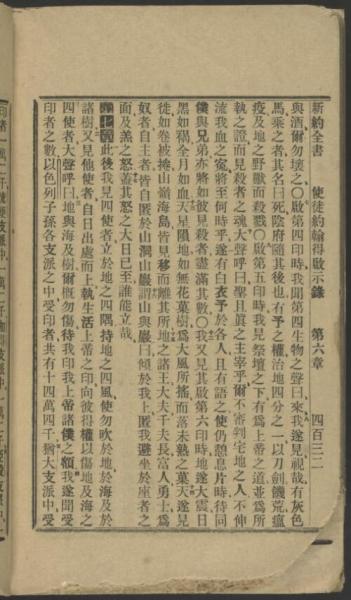 新約全書　使徒約翰得啟示錄　第六章　四百三二
與酒爾勿壞之〇啟第四印時我聞第四生物之聲曰來我遂見視哉有灰色
馬乘之者其名曰死陰府隨其後也有予之權治地四分之一以刀劍饑荒瘟
疫及地之野獸而殺戮〇啟第五印時我見祭壇之下有爲上帝之道並爲所
執之證而見殺者之魂大聲呼曰聖且眞之主宰乎爾不審判宅地之人不伸
流我血之寃將至何時乎遂有白衣予於各人且有語之使仍憩息片時待同
僕與兄弟亦將如彼見殺者盡滿其數〇我又見其啟第六印時地遂大震日
黑如𥿄全月如血天星隕地如無花菓樹爲大風所搖而落未熟之菓天遂見
徙如卷被捲山嶺海島皆見移而離其所地之諸王大夫千夫長富人勇士爲
奴者自主者皆自匿於山洞山巖謂山與巖曰傾於我上匿我避坐於座者之
面及羔之怒蓋其怒之大日已至誰能立哉
第七章此後我見四使者立於地之四隅持地之四風使勿吹於地於海及於
諸樹又見他使者自日出處而上執生活上帝之印向彼得權以傷地及海之
四使者大聲呼曰地與海及樹爾概勿傷待我印我上帝諸僕之額我遂聞受
印者之數以色列子孫各支派之中受印者共有十四萬四千猶大支派中受